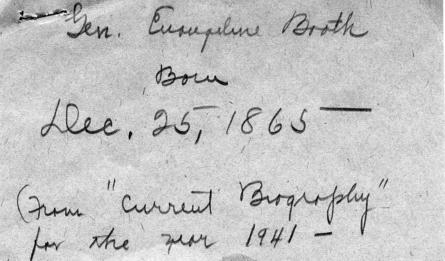 Gen. Evangeline Booth
Born
Dec. 25, 1865 —
(From "Current Biography"
for the year 1941 —